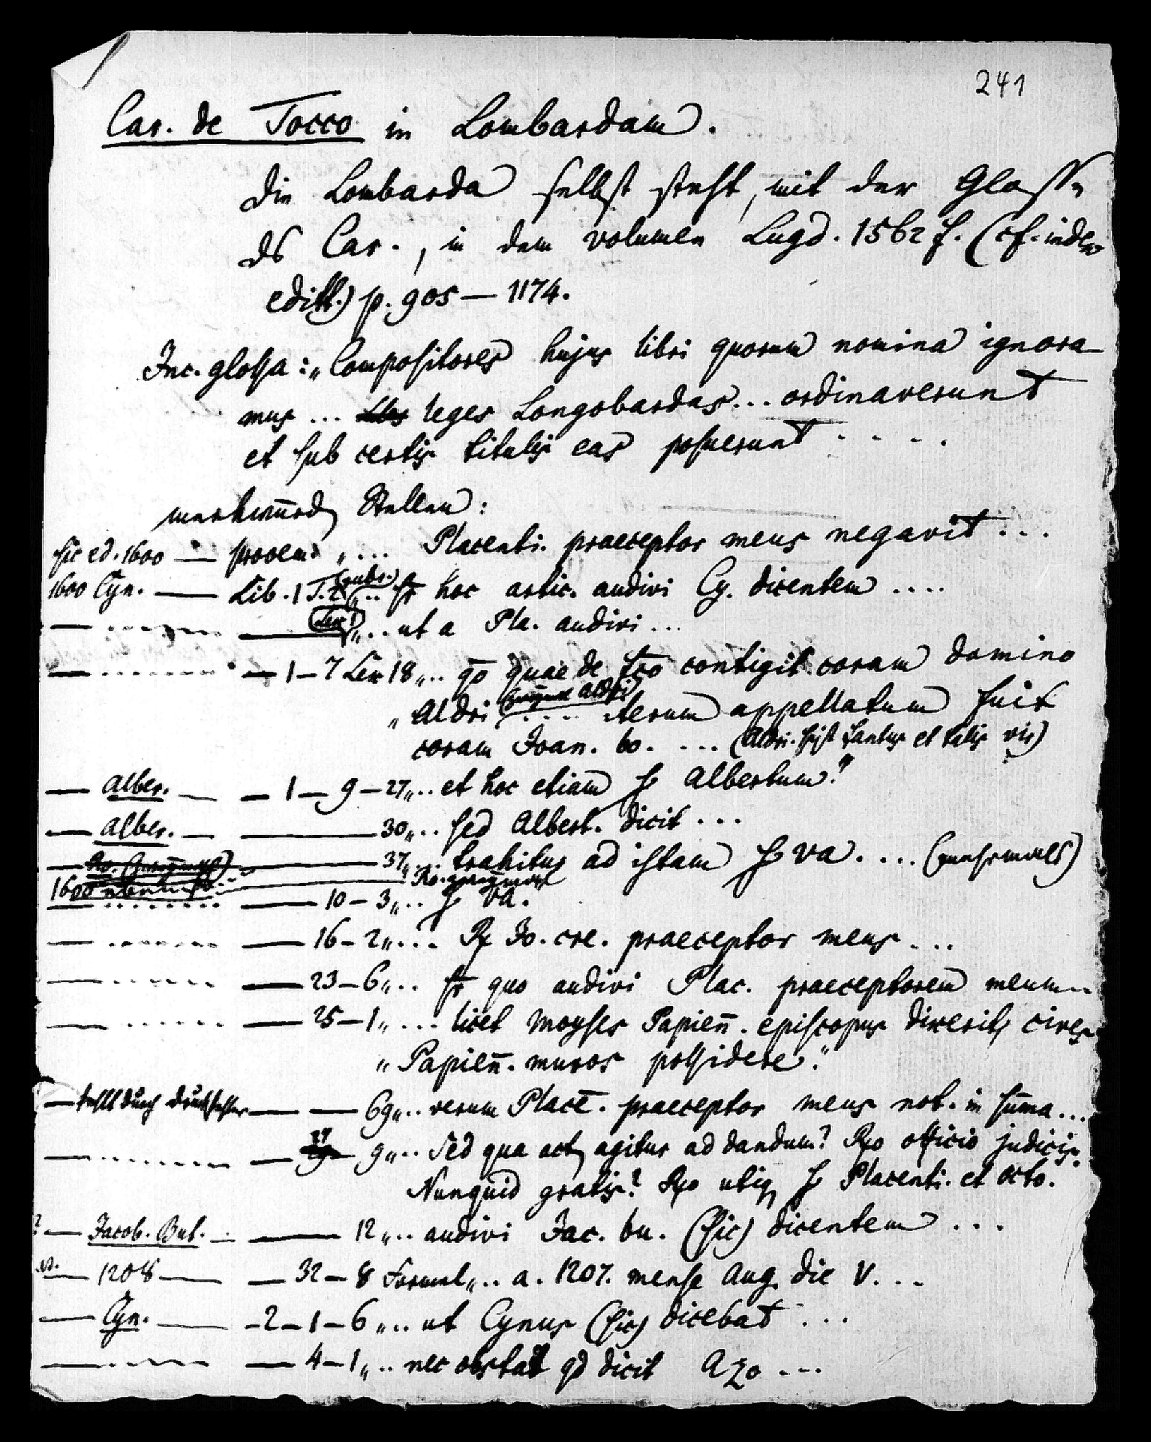 241
Car. de Tocco in Lombardam.
Die Lombarda selbst steht, mit der Glosse
des Car., in dem volumen Lugd. 1562 f. (cf. index
editt.) p. 905 — 1174.
Inc. glossa: „Compositores hujus libri quorum nomina ignora-
mus ... leges Longobardas... ordinaverunt
et sub certis titulis eas posuerunt . . . . .
merkwürd. Stellen:
sic ed. 1600 — prooem. „... Placenti. praeceptor meus negavit ...
1600 Cyn. — Lib. 1 T. 2 „.. sr hoc artic. audivi Cy. dicentem ....
— . . . . — „.. ut a Pla. audivi ...
— . . . . — 1 — 7 Lex 18 „.. qo quae de contigit coram domino
„Aldri .... iterum appellatum fuit
coram Joan. bo. ... (Aldri. fuit et talis vir)
— Alber. — — 1 — 9 — 27 „.. et hoc etiam s. Albertum."
— Alber. — — 30 „.. sed Albert. dicit ...
— 37 „.. trahitur ad istam s. va. ...
1600 — 10 — 3 „.. s. va.
— . . . . — 16 — 2 „... R. Jo. cre. praeceptor meus ...
— . . . . — 23 — 6 „.. sr quo audivi Plac. praeceptorem meum..
— . . . . — 25 — 1 „... licet Moyses Papien̄. episcopus dixerit, cives
„Papien̄. muros possidere."
— fehlt durch Druckfehler — — 69 „.. verum Placē. praeceptor meus not. in sūma ...
— . . . . — 27 9 „.. Sed qua act. agitur ad dandum? Rƥo officio judicis.
Nunquid gratis? Rƥo utiq. s. Placenti. et octo.
? — Jacob. But. — — 12 „.. audivi Jac. bu. (sic) dicentem ...
— 1208 — — 32 — 8 Formul „.. a. 1207. mense Aug. die V. ...
— Cyn. — — 2 — 1 — 6 „.. ut Cynus (sic) dicebat ...
— . . . . — 4 — 1 „.. nec obstat qd dicit Azo ...